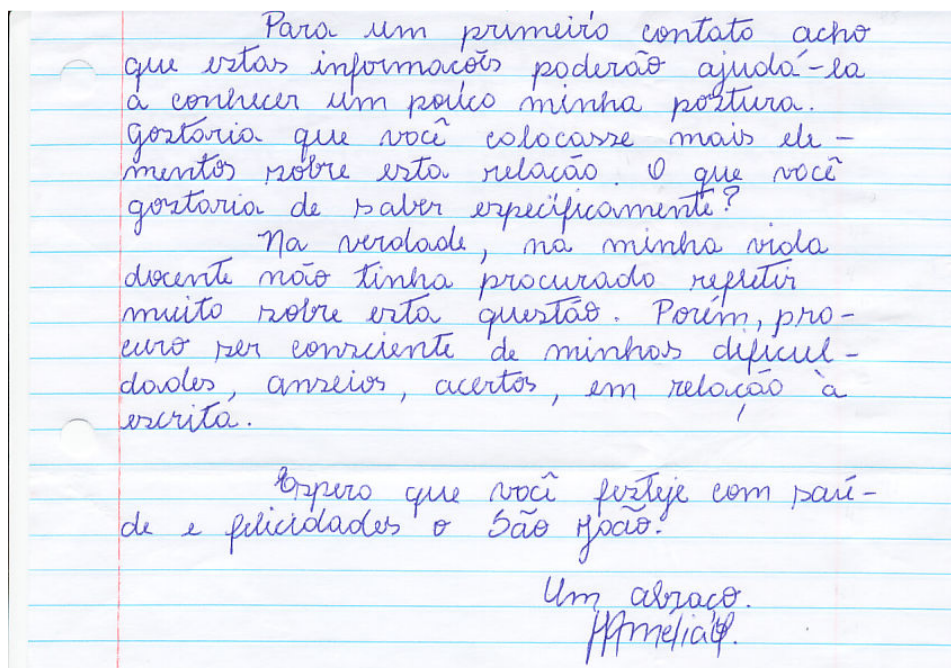 Para um primeiro contato acho
que estas informações poderão ajudá-la
a conhecer um pouco minha postura.
Gostaria que você colocasse mais ele-
mentos sobre esta relação. O que você
gostaria de saber especificamente?
Na verdade, na minha vida
docente não tinha procurado refletir
muito sobre esta questão. Porém, pro-
curo ser consciente de minhas dificul-
dades, anseios, acertos, em relação à
escrita.
Espero que você festeje com saú-
de e felicidades o São João.
Um abraço.